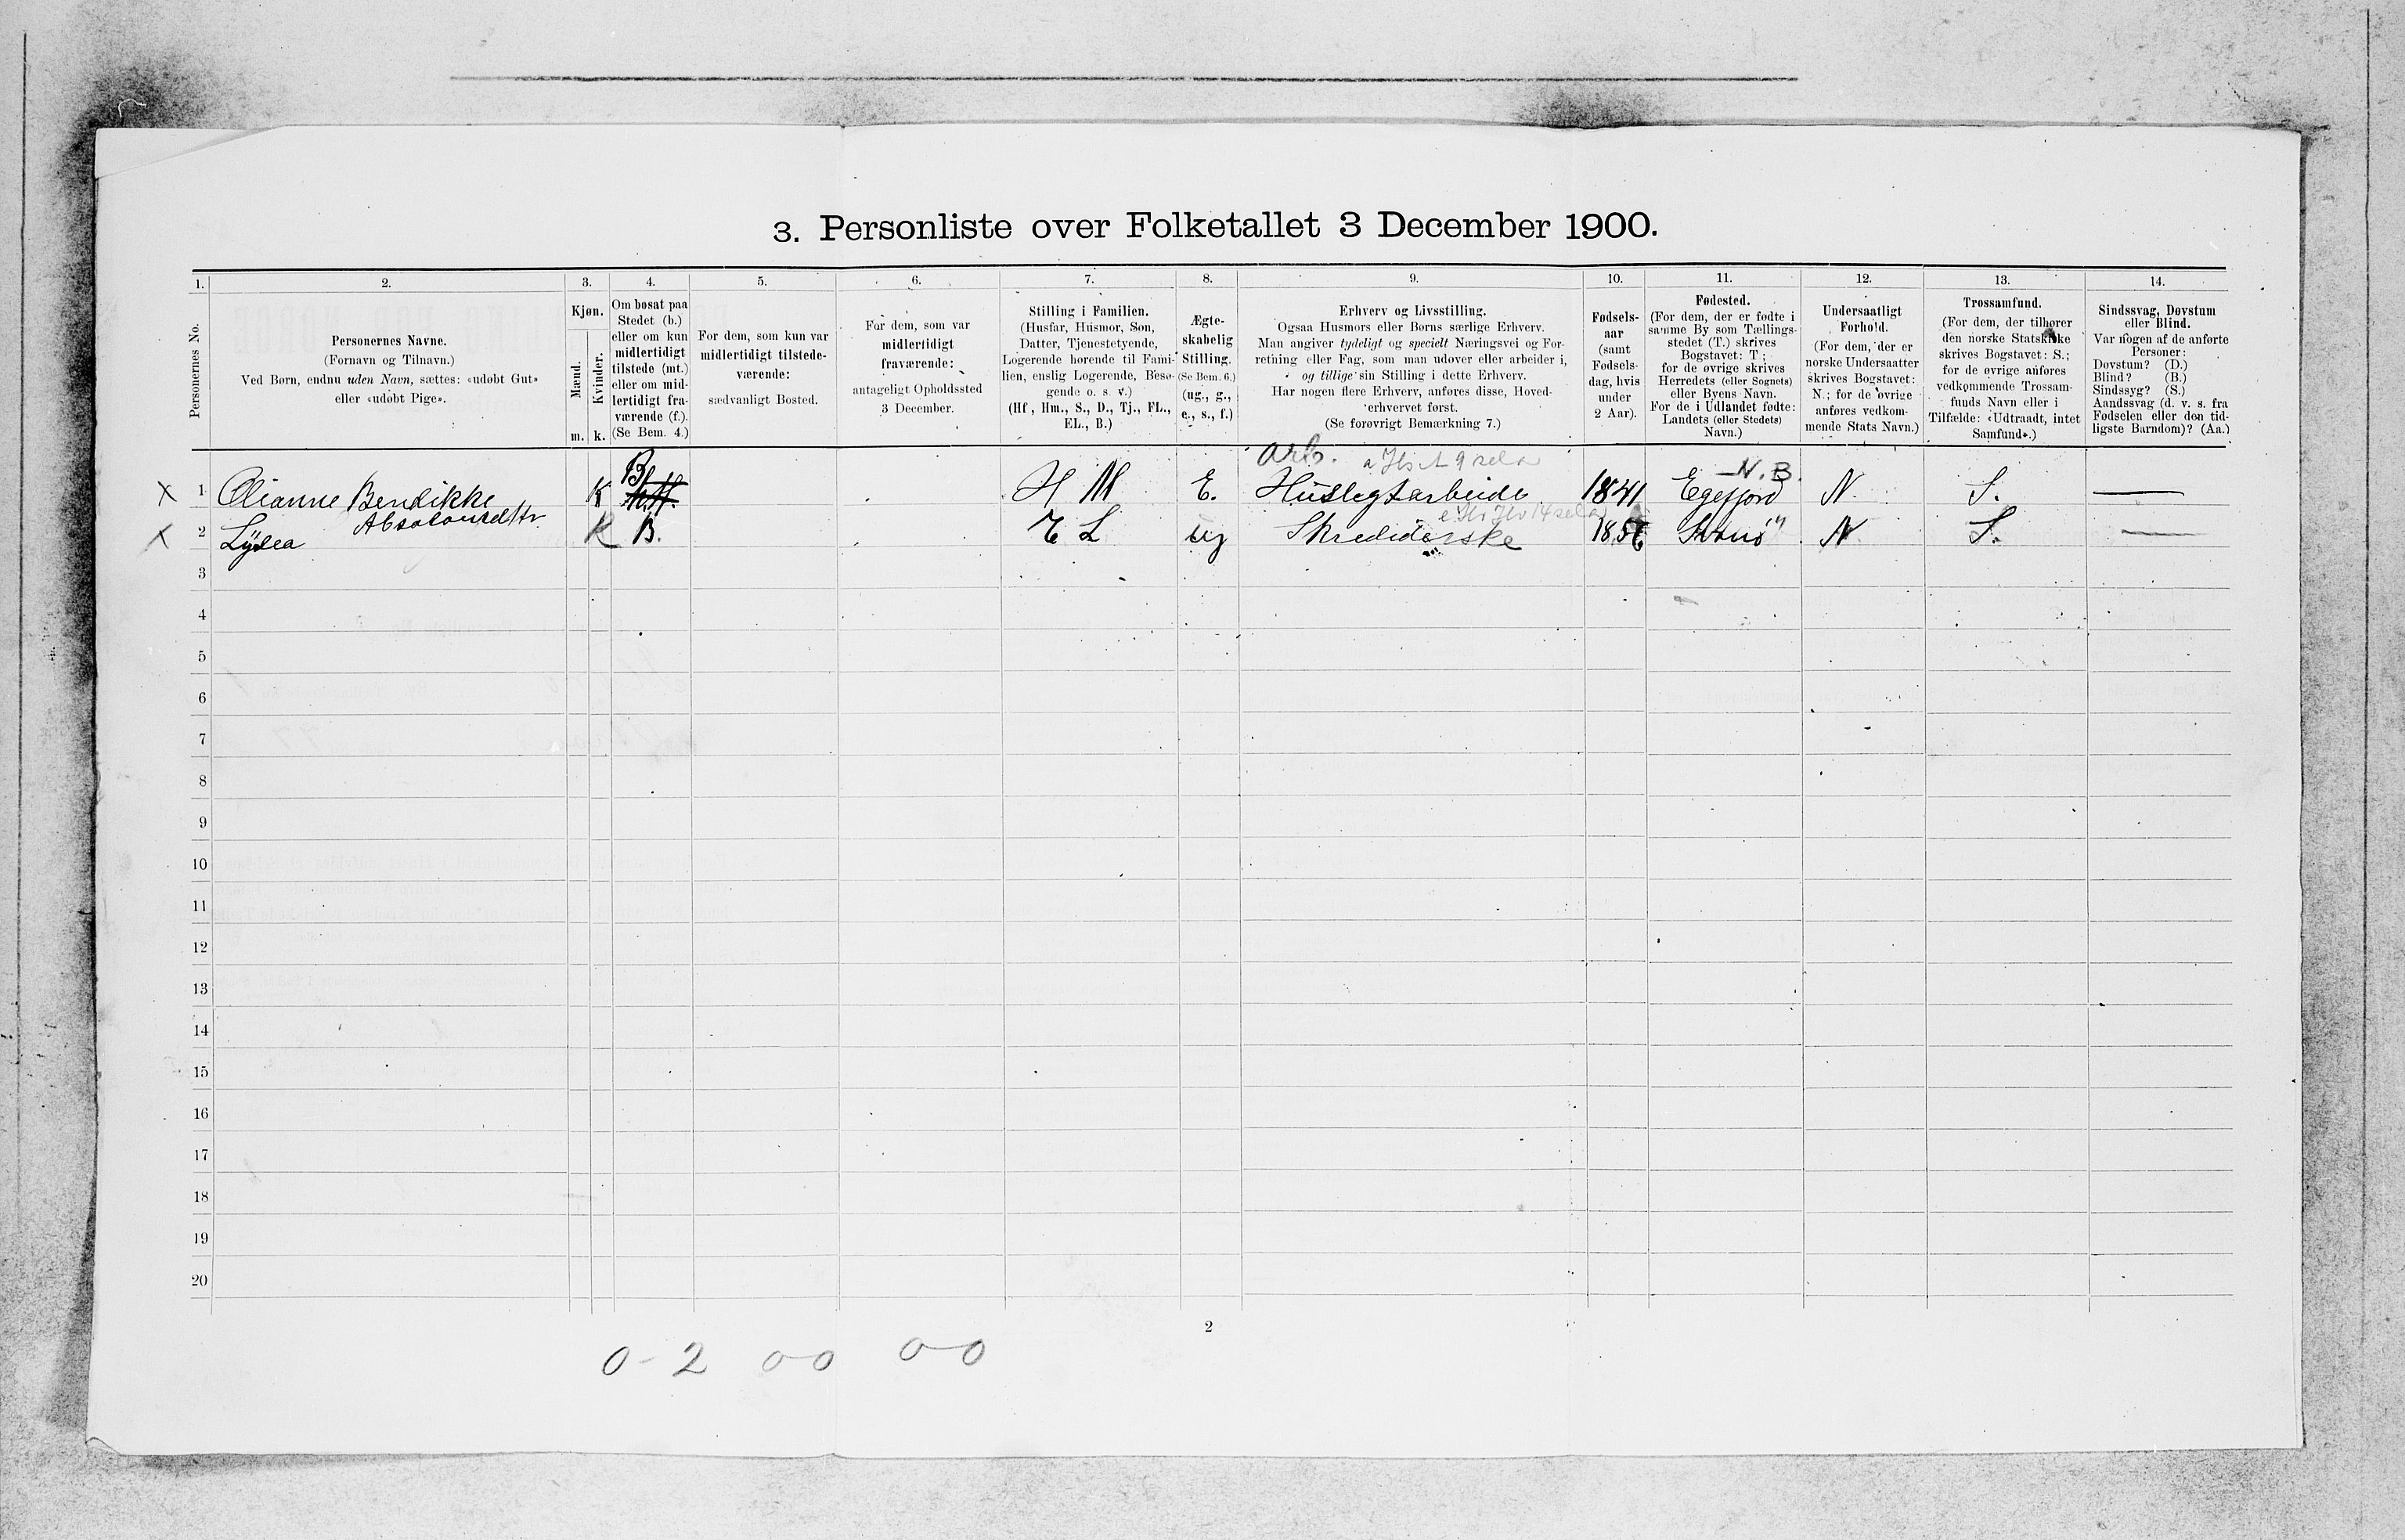 3. Personliste over Folketallet 3 December 1900.
1. 2. 3. 4. 5. 6. 7. 8. 9. 10. 11. 12. 13. 14.
Personernes No.
Personernes Navne.
(Fornavn og Tilnavn.)
Ved Børn, endnu uden Navn, sættes: «udøbt Gut»
eller «udøbt Pige».
Kjøn.
Mænd.
Kvinder.
m. k.
Om bosat paa
Stedet (b.)
eller om kun
midlertidigt
tilstede (mt.)
eller om mid-
lertidigt fra-
værende (f.).
(Se Bem. 4.)
For dem, som kun var
midlertidigt tilstede-
værende:
sædvanligt Bosted.
For dem, som var
midlertidigt
fraværende:
antageligt Opholdssted
3 December.
Stilling i Familien.
(Husfar, Husmor, Søn,
Datter, Tjenestetyende,
Logerende hørende til Fami-
lien, enslig Logerende, Besø-
gende o. s. v.)
(Hf, Hm., S., D., Tj., FL.,
EL., B.)
Ægte-
skabelig
Stilling.
(Se Bem. 6.)
(ug., g.,
e., s., f.)
Erhverv og Livsstilling.
Ogsaa Husmors eller Børns særlige Erhverv.
Man angiver tydeligt og specielt Næringsvei og For-
retning eller Fag, som man udøver eller arbeider i,
og tillige sin Stilling i dette Erhverv.
Har nogen flere Erhverv, anføres disse, Hoved-
erhvervet først.
(Se forøvrigt Bemærkning 7.)
Fødsels-
aar
(samt
Fødsels-
dag, hvis
under
2 Aar).
Fødested.
(For dem, der er fødte i
samme By som Tællings-
stedet (T.) skrives
Bogstavet: T;
for de øvrige skrives
Herredets (eller Sognets)
eller Byens Navn.
For de i Udlandet fødte:
Landets (eller Stedets)
Navn.)
Undersaatligt
Forhold.
(For dem, der er
norske Undersaatter
skrives Bogstavet:
N.; for de øvrige
anføres vedkom-
mende Stats Navn.)
Trossamfund.
(For dem, der tilhører
den norske Statskirke
skrives Bogstavet: S.;
for de øvrige anføres
vedkommende Trossam-
funds Navn eller i
Tilfælde: «Udtraadt, intet
Samfund».)
Sindssvag, Døvstum
eller Blind.
Var nogen af de anførte
Personer:
Døvstum? (D.)
Blind? (B.)
Sindssyg? (S.)
Aandssvag (d. v. s. fra
Fødselen eller den tid-
ligste Barndom)? (Aa.)
B arb. N. B.
X 1 Olianne Bendikke K H M E. Huslegtarbeide 1841 Egefjord N. S.
X 2 Lydea Absalonsdttr K B. E L ug Skredderske 1856 N S.
3
4
5
6
7
8
9
10
11
12
13
14
15
16
17
18
19
20
2
0-2 0-0 0-0